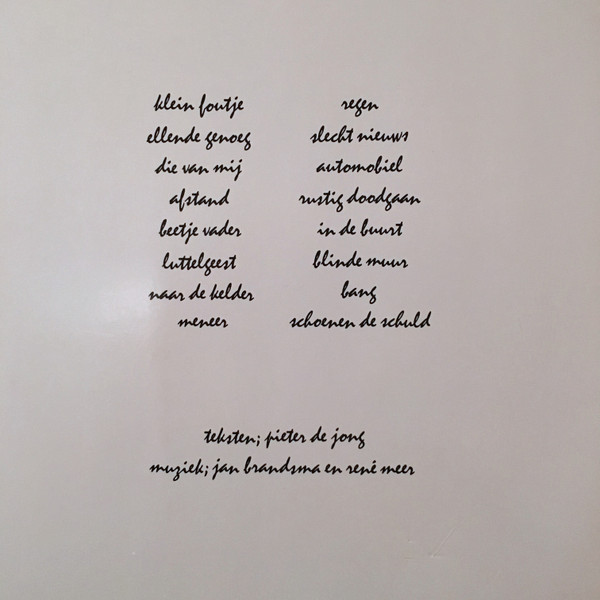 klein foutje
ellende genoeg
die van mij
afstand
beetje vader
luttelgeest
naar de kelder
meneer
regen
slecht nieuws
automobiel
rustig doodgaan
in de buurt
blinde muur
bang
schoenen de schuld
teksten; pieter de jong
muziek; jan brandsma en rené meer